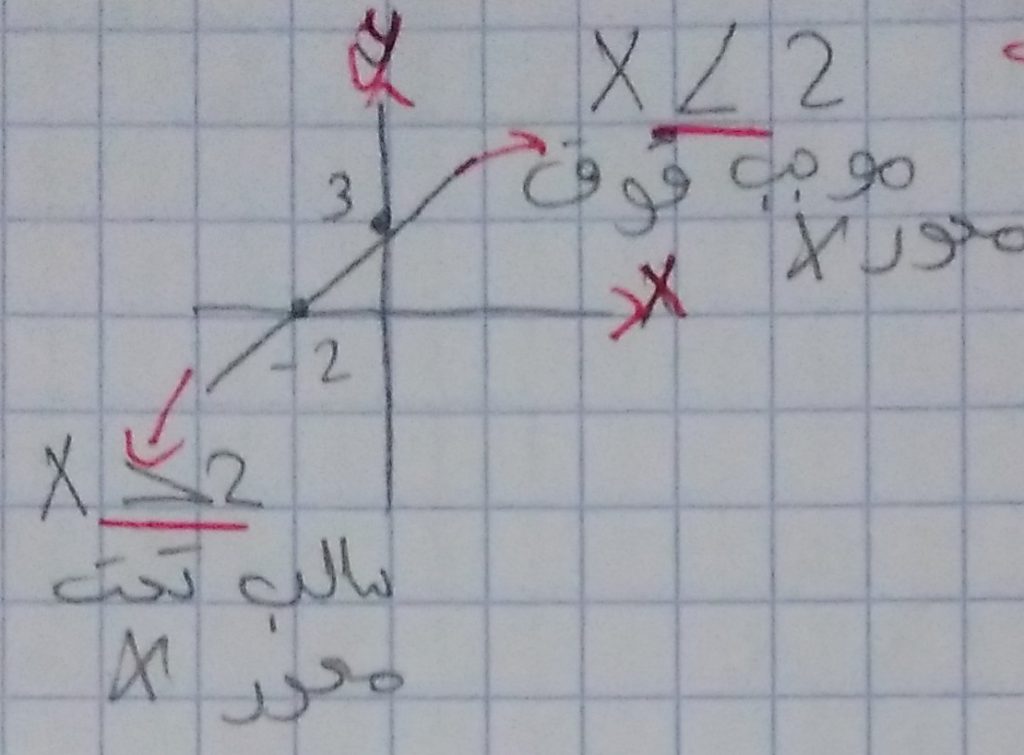 y
X < 2
موجب فوق
محور X
3
X
-2
X ≥ 2
سالب تحت
محور X